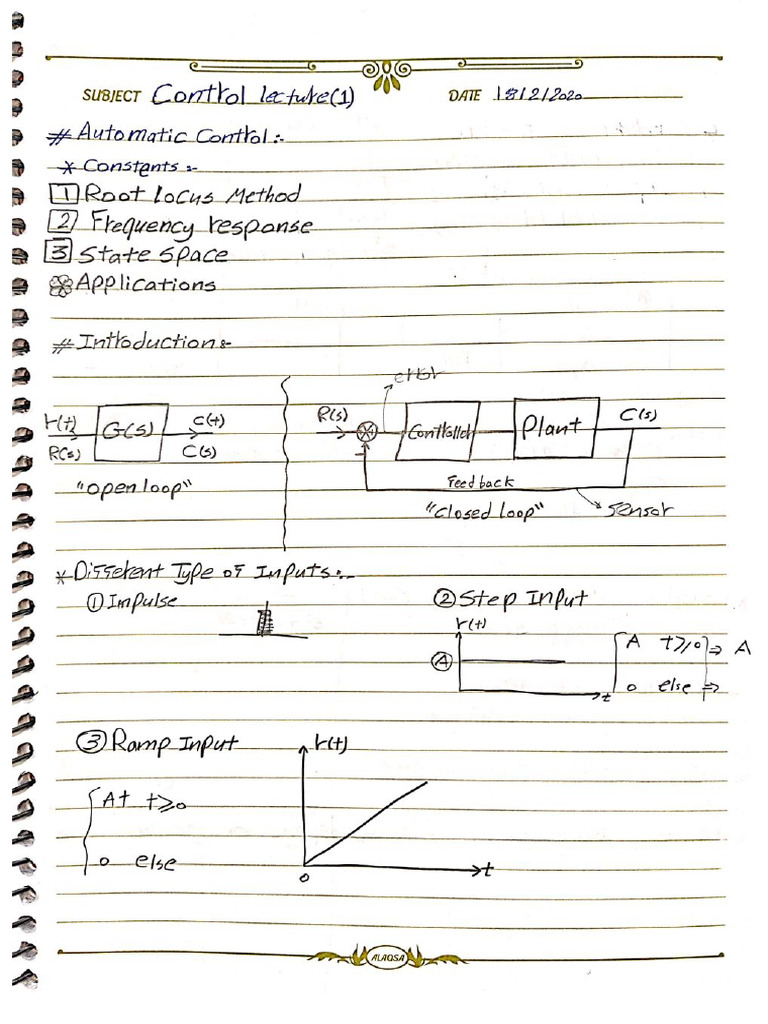 SUBJECT Control lecture(1) DATE 18/2/2020
# Automatic Control:-
* Constents:-
1 Root locus Method
2 Frequency response
3 State space
Applications
# Introduction:-
error
r(t) G(s) c(t)
R(s) C(s)
R(s) Controller Plant C(s)
-
Feedback
"open loop"
"closed loop" sensor
* Different Type of Inputs:-
① Impulse
② Step Input
r(t)
A
A t≥0 ⇒ A
0 else ⇒
t
③ Ramp Input
r(t)
At t≥0
0 else
0
t
ALAQSA